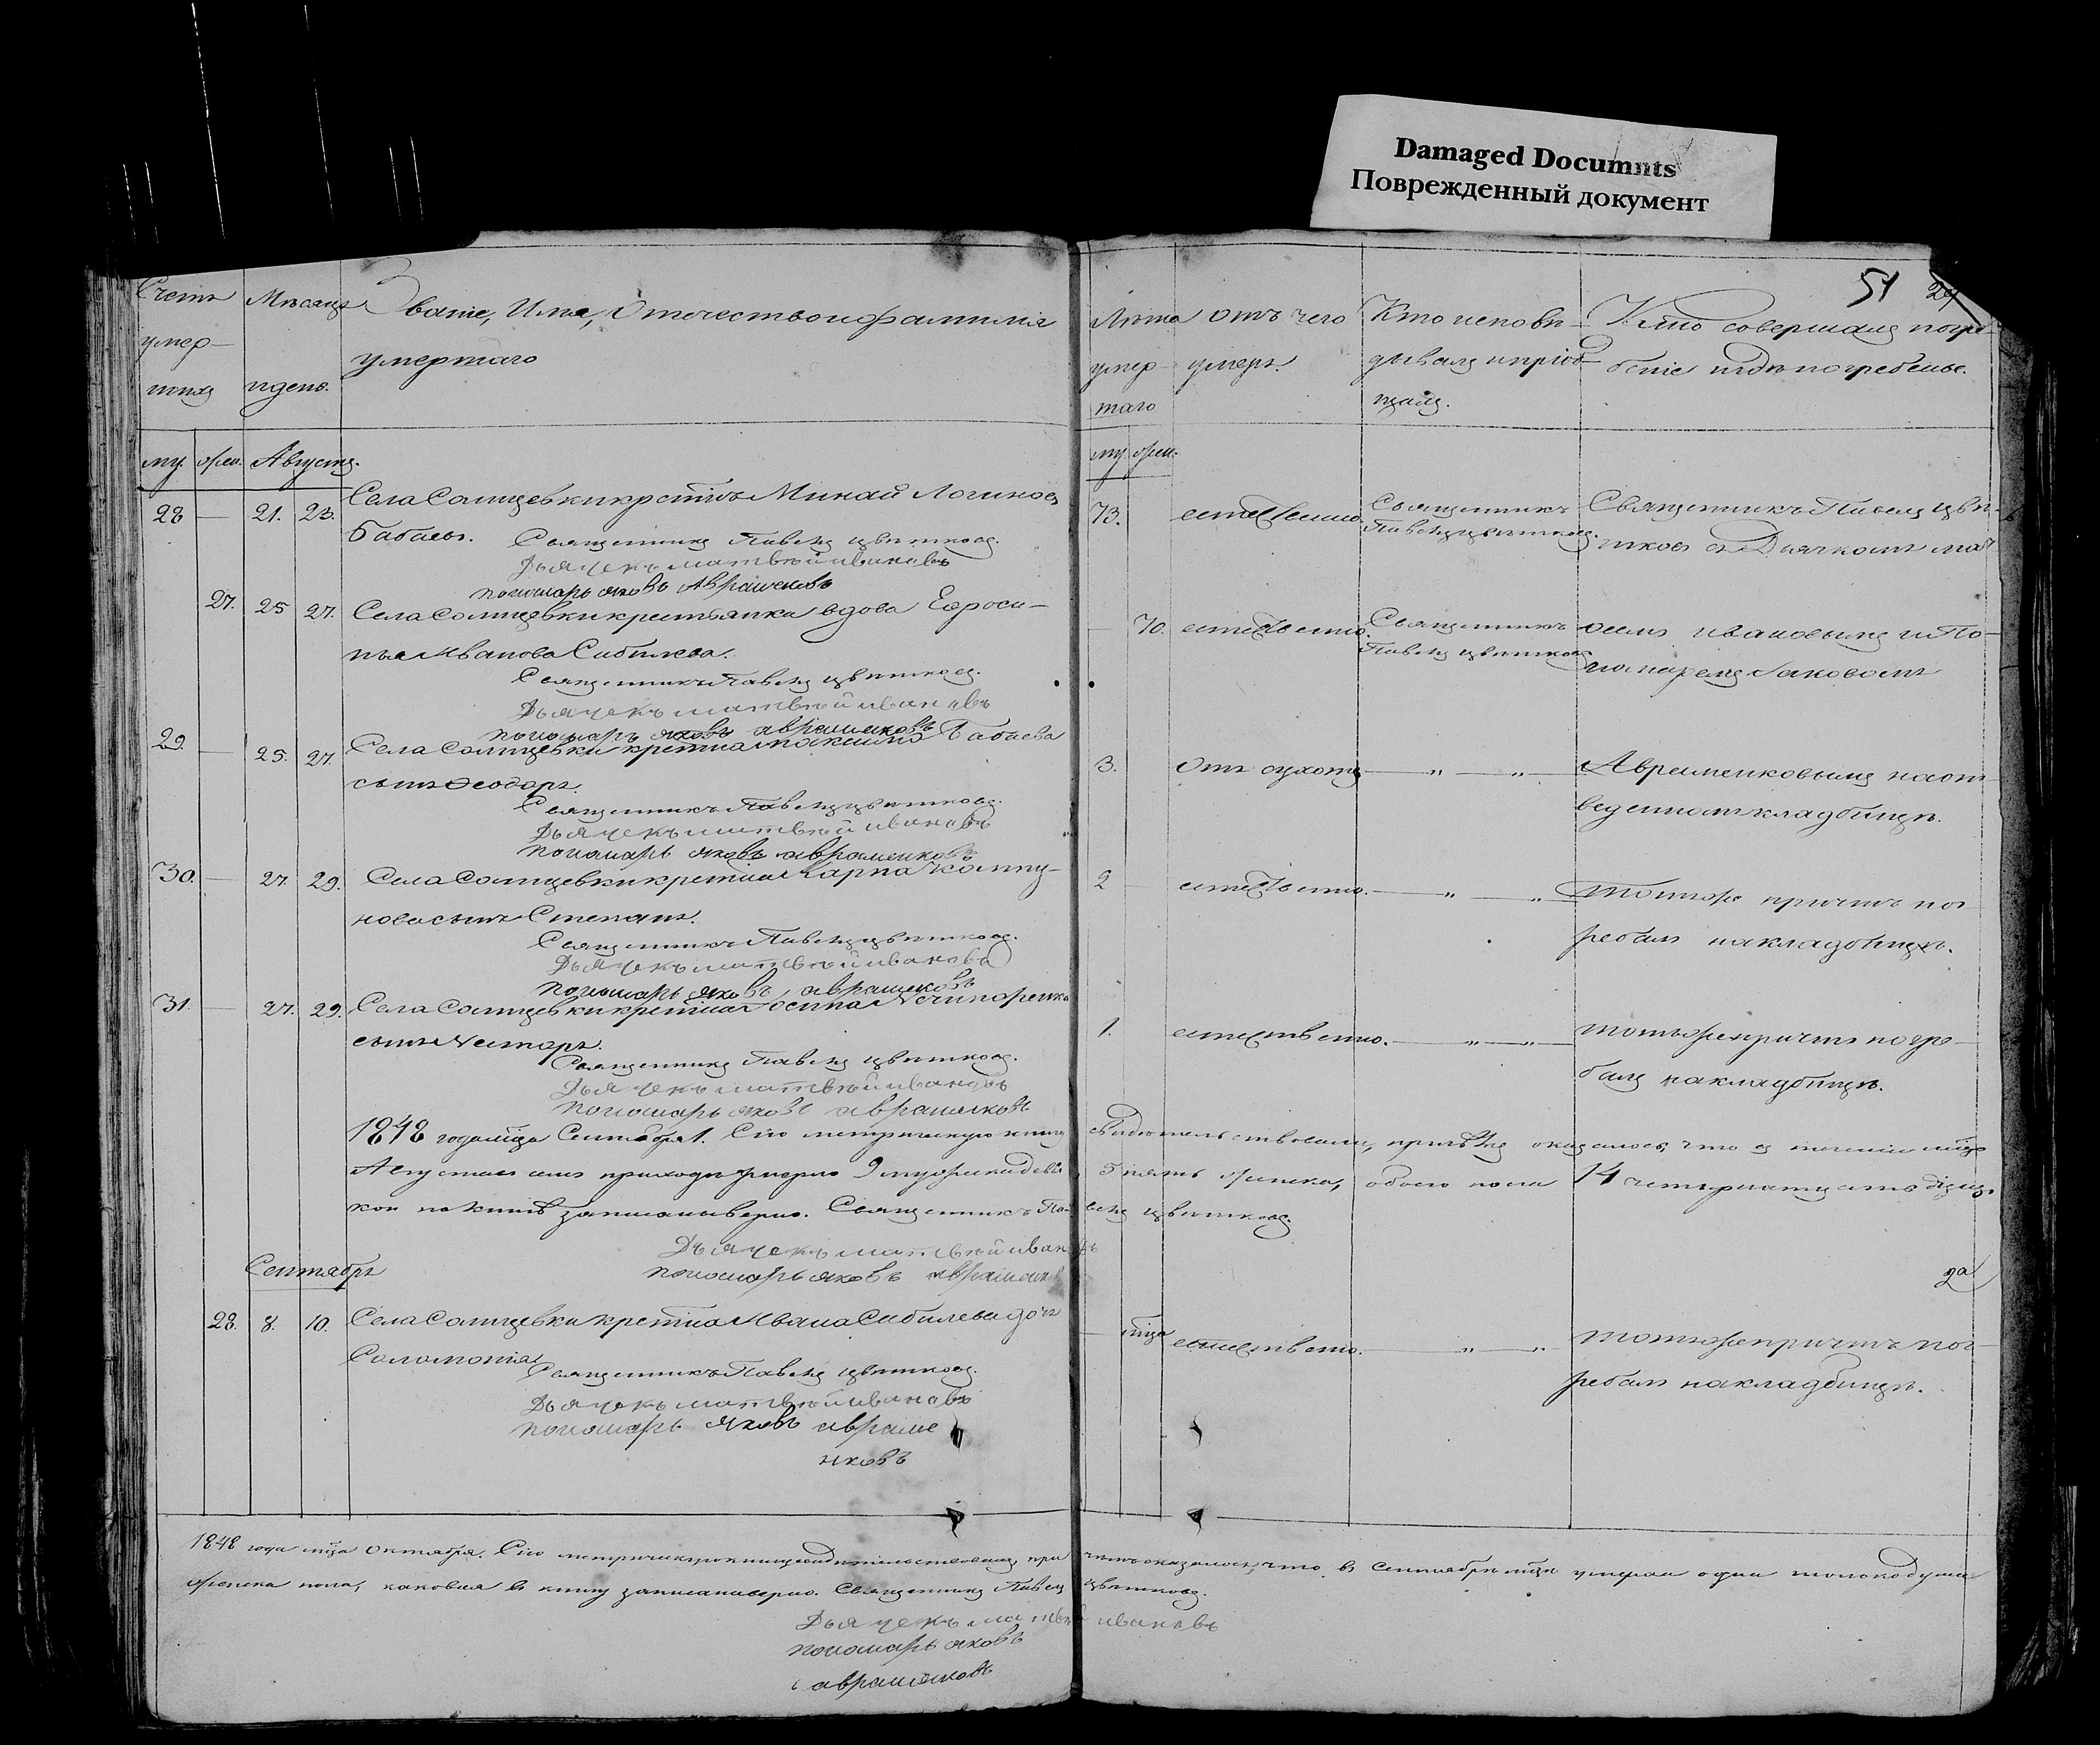 Damaged Documnts
Поврежденный документ
51 29
Счетъ
умер-
шихъ
Мѣсяцъ
и день.
Званіе, Имя, Отечество и фамилія
умершаго
Лѣта
умер
шаго
отъ чего
умеръ.
Кто исповѣ-
дывалъ и пріоб-
щалъ.
Кто совершалъ погре-
беніе и гдѣ погребены.
му. жен. Августъ.
му жен.
28 — 21. 23. Села Солнцевки крстнъ Минай Логиновъ
Бабаевъ. Священникъ Павелъ Цвѣтковъ.
Дьячекъ матвѣй ивановъ
пономарь яковъ Авраменковъ
73. естественно. Священникъ
Павелъ Цвѣтковъ.
Священникъ Павелъ Цвѣ-
тковъ съ Дьячкомъ мат
27. 25 27. Села Солнцевки крестьянка вдова Ефроси-
нья Иванова Сибилева.
Священникъ Павелъ Цвѣтковъ.
Дьячекъ матвѣй ивановъ
пономарь яковъ авраменковъ
— 70. естественно. Священникъ
Павелъ Цвѣтковъ
веемъ Ивановымъ и По-
номаремъ Іаковомъ
29. — 25. 27. Села Солнцевки крстна Бабаева
сынъ Ѳеодоръ.
Священникъ Павелъ Цвѣтковъ.
Дьячекъ матвѣй ивановъ
пономарь яковъ авраменковъ
3. Отъ сухоты — „ — „ — Авраменковымъ на от-
веденномъ кладбищѣ.
30. — 27. 29. Села Солнцевки крстна Карпа
нова сынъ Степанъ.
Священникъ Павелъ Цвѣтковъ.
Дьячекъ матвѣй ивановъ
пономарь яковъ авраменковъ
2 естественно. — „ — „ — тотъ же причтъ пог-
ребалъ на кладбищѣ.
31. — 27. 29. Села Солнцевки крстна Осипа Нечипоренка
сынъ Несторъ.
Священникъ Павелъ Цвѣтковъ.
Дьячекъ матвѣй ивановъ
пономарь яковъ авраменковъ
1. естественно. — „ — „ — тотъ же причтъ погре-
балъ на кладбищѣ.
1848 года мца Сентября 1. Сію метрическую книгу свидѣтельствовали, при чемъ оказалось, что въ теченіи мца
Августа въ семъ приходѣ умерло 9 мужеска девять, 5 пять женска, обоего пола 14 четырнадцать душъ,
кои по книгѣ записаны вѣрно. Священникъ Павелъ Цвѣтковъ.
Дьячекъ матвѣй ивановъ
пономарь яковъ авраменковъ
Сентябрь
28. 8. 10. Села Солнцевки крстна Ивана Сибилева дочь
Соломонія
Священникъ Павелъ Цвѣтковъ.
Дьячекъ матвѣй ивановъ
пономарь яковъ авраме
нковъ
— мца естественно. — „ — „ тотъ же причтъ пог-
ребалъ на кладбищѣ.
1848 года мца Октября. Сію метрическую книгу свидѣтельствовали, при чемъ оказалось, что въ Сентябрѣ мцѣ умерла одна только душа
женска пола, каковая въ книгу записана вѣрно. Священникъ Павелъ Цвѣтковъ.
Дьячекъ матвѣй ивановъ
пономарь яковъ
авраменковъ